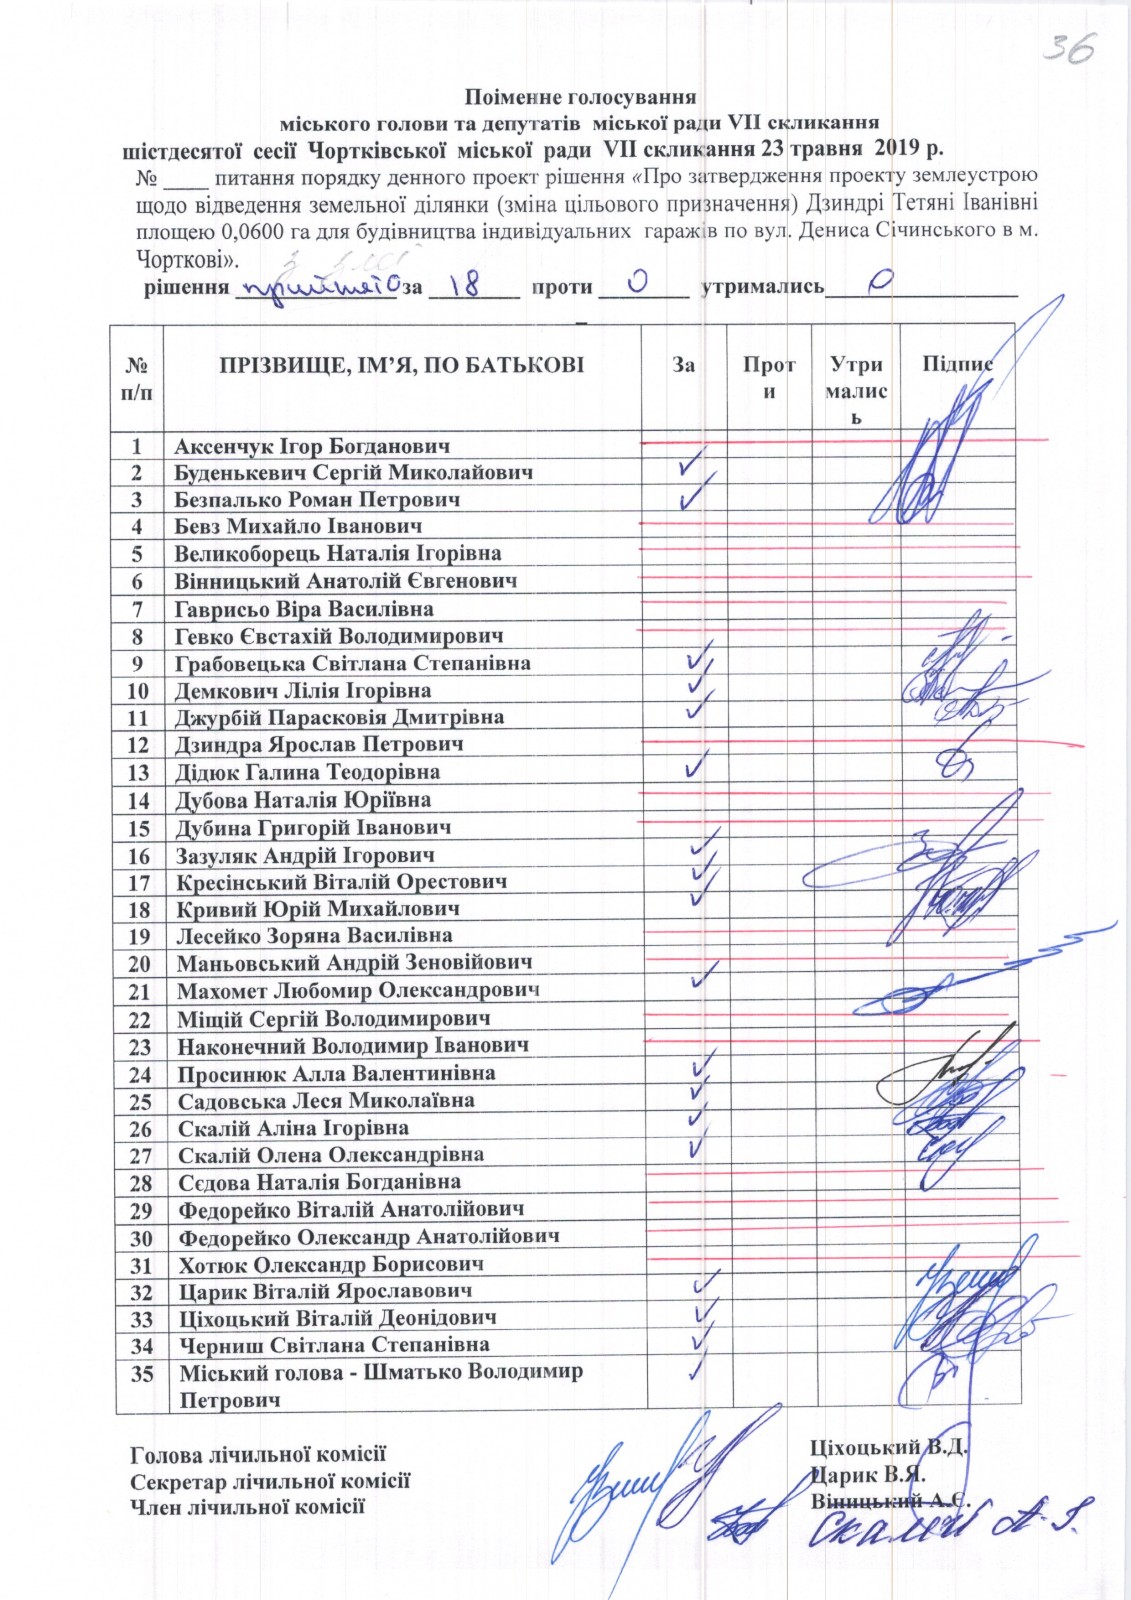 36
Поіменне голосування
міського голови та депутатів міської ради VII скликання
шістдесятої сесії Чортківської міської ради VII скликання 23 травня 2019 р.
№ ____ питання порядку денного проект рішення «Про затвердження проекту землеустрою
щодо відведення земельної ділянки (зміна цільового призначення) Дзиндрі Тетяні Іванівні
площею 0,0600 га для будівництва індивідуальних гаражів по вул. Дениса Січинського в м.
Чорткові».
рішення прийнято за 18 проти 0 утримались 0
№ п/п ПРІЗВИЩЕ, ІМ’Я, ПО БАТЬКОВІ За Проти Утрималисть Підпис
1 Аксенчук Ігор Богданович
2 Буденькевич Сергій Миколайович ✓
3 Безпалько Роман Петрович ✓
4 Бевз Михайло Іванович
5 Великоборець Наталія Ігорівна
6 Вінницький Анатолій Євгенович
7 Гаврисьо Віра Василівна
8 Гевко Євстахій Володимирович
9 Грабовецька Світлана Степанівна ✓
10 Демкович Лілія Ігорівна ✓
11 Джурбій Парасковія Дмитрівна ✓
12 Дзиндра Ярослав Петрович
13 Дідюк Галина Теодорівна ✓
14 Дубова Наталія Юріївна
15 Дубина Григорій Іванович
16 Зазуляк Андрій Ігорович ✓
17 Кресінський Віталій Орестович ✓
18 Кривий Юрій Михайлович ✓
19 Лесейко Зоряна Василівна
20 Маньовський Андрій Зеновійович
21 Махомет Любомир Олександрович ✓
22 Міщій Сергій Володимирович
23 Наконечний Володимир Іванович
24 Просинюк Алла Валентинівна ✓
25 Садовська Леся Миколаївна ✓
26 Скалій Аліна Ігорівна ✓
27 Скалій Олена Олександрівна ✓
28 Сєдова Наталія Богданівна
29 Федорейко Віталій Анатолійович
30 Федорейко Олександр Анатолійович
31 Хотюк Олександр Борисович
32 Царик Віталій Ярославович ✓
33 Ціхоцький Віталій Деонідович ✓
34 Черниш Світлана Степанівна ✓
35 Міський голова - Шматько Володимир ✓
Петрович
Голова лічильної комісії Ціхоцький В.Д.
Секретар лічильної комісії Царик В.Я.
Член лічильної комісії Віницький А.Є.
Скалій А. І.